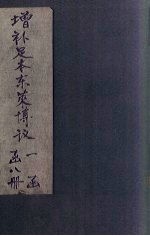 增补足本东莱博议 一函
函八册